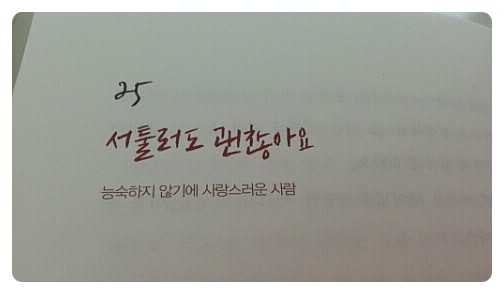 25
서툴러도 괜찮아요
능숙하지 않기에 사랑스러운 사람